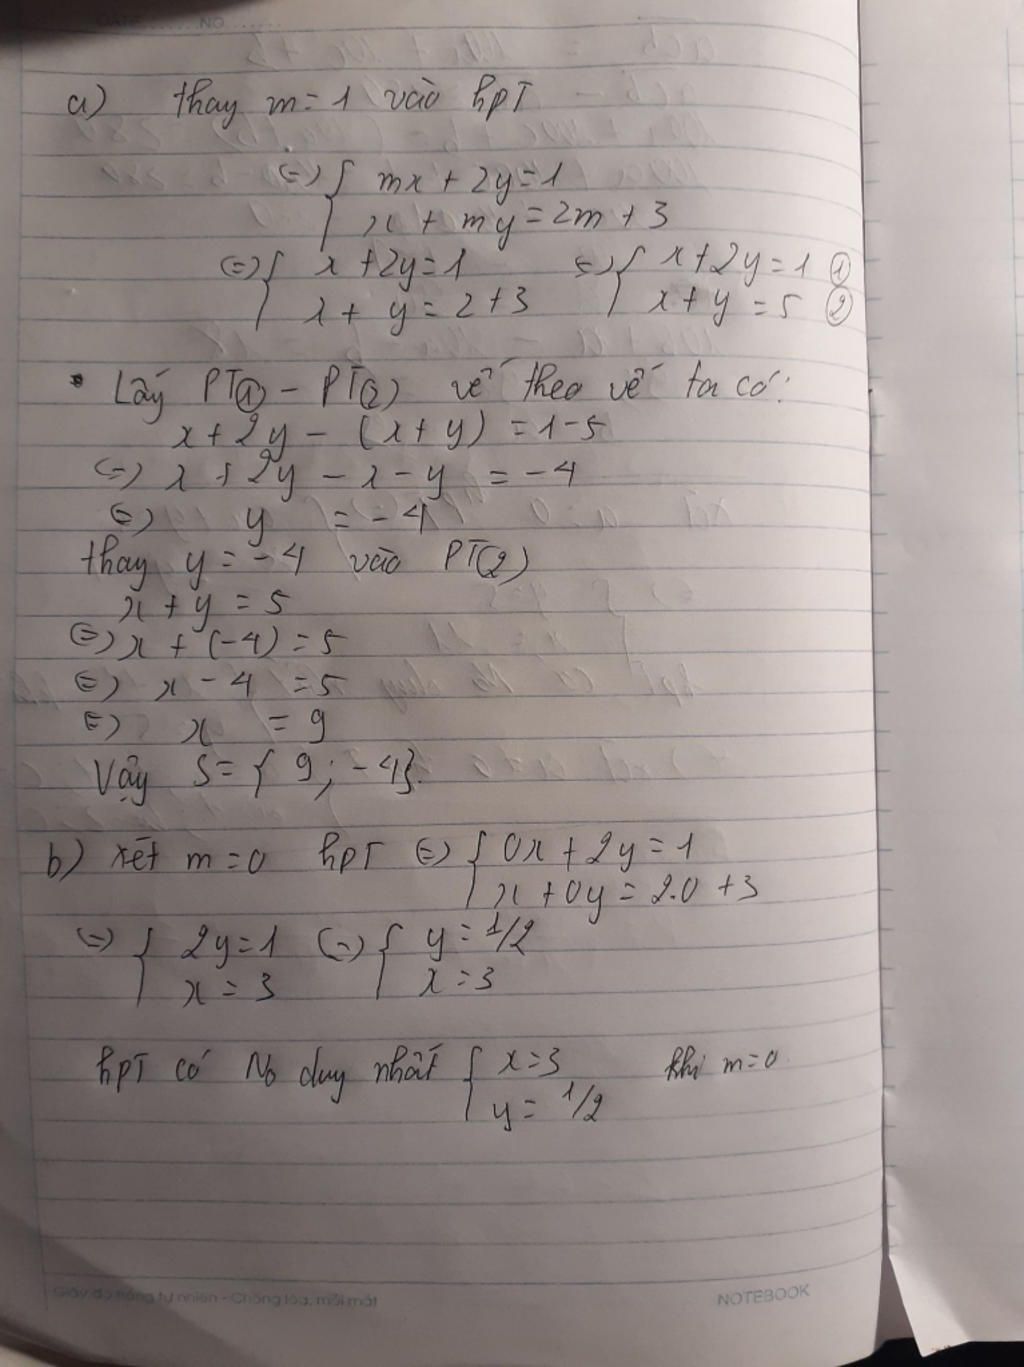 NO
a) thay m = 1 vào hpT
(=) { mx + 2y = 1
x + my = 2m + 3
(=) { x + 2y = 1 (=) { x + 2y = 1 ①
x + y = 2 + 3 x + y = 5 ②
• Lấy PT① - PT(2) vế theo vế ta có:
x + 2y - (x + y) = 1 - 5
(=) x + 2y - x - y = -4
(=) y = -4
thay y = -4 vào PT(2)
x + y = 5
(=) x + (-4) = 5
(=) x - 4 = 5
(=) x = 9
Vậy S = { 9 ; -4}.
b) xét m = 0 hpT (=) { 0x + 2y = 1
x + 0y = 2.0 + 3
(=) { 2y = 1 (=) { y = 1/2
x = 3 x = 3
hpT có No duy nhất { x = 3 khi m = 0
y = 1/2
- Chống lóa, mỏi mắt NOTEBOOK